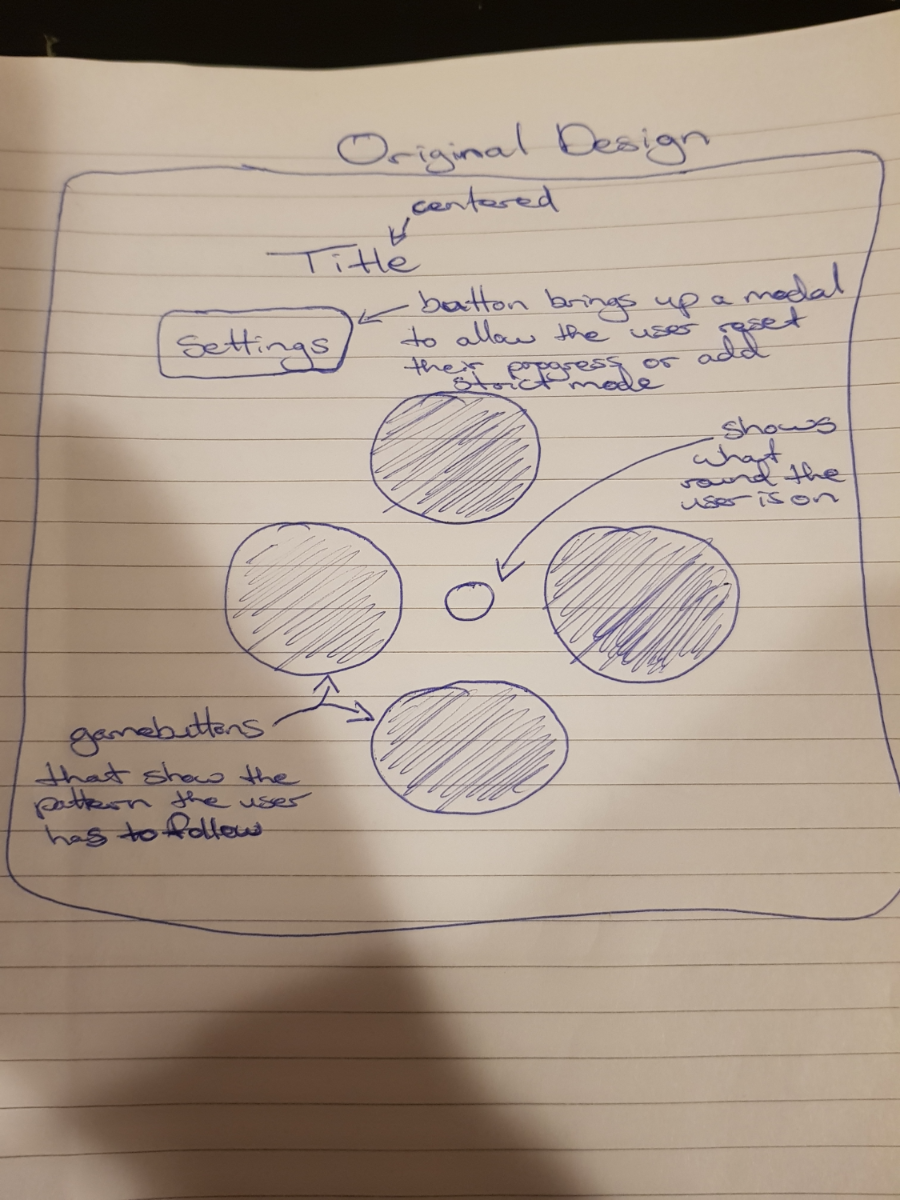 Original Design
centered
Title
Settings
button brings up a modal
to allow the user reset
their progress or add
strict mode
shows
what
round the
user is on
gamebuttons
that show the
pattern the user
has to follow